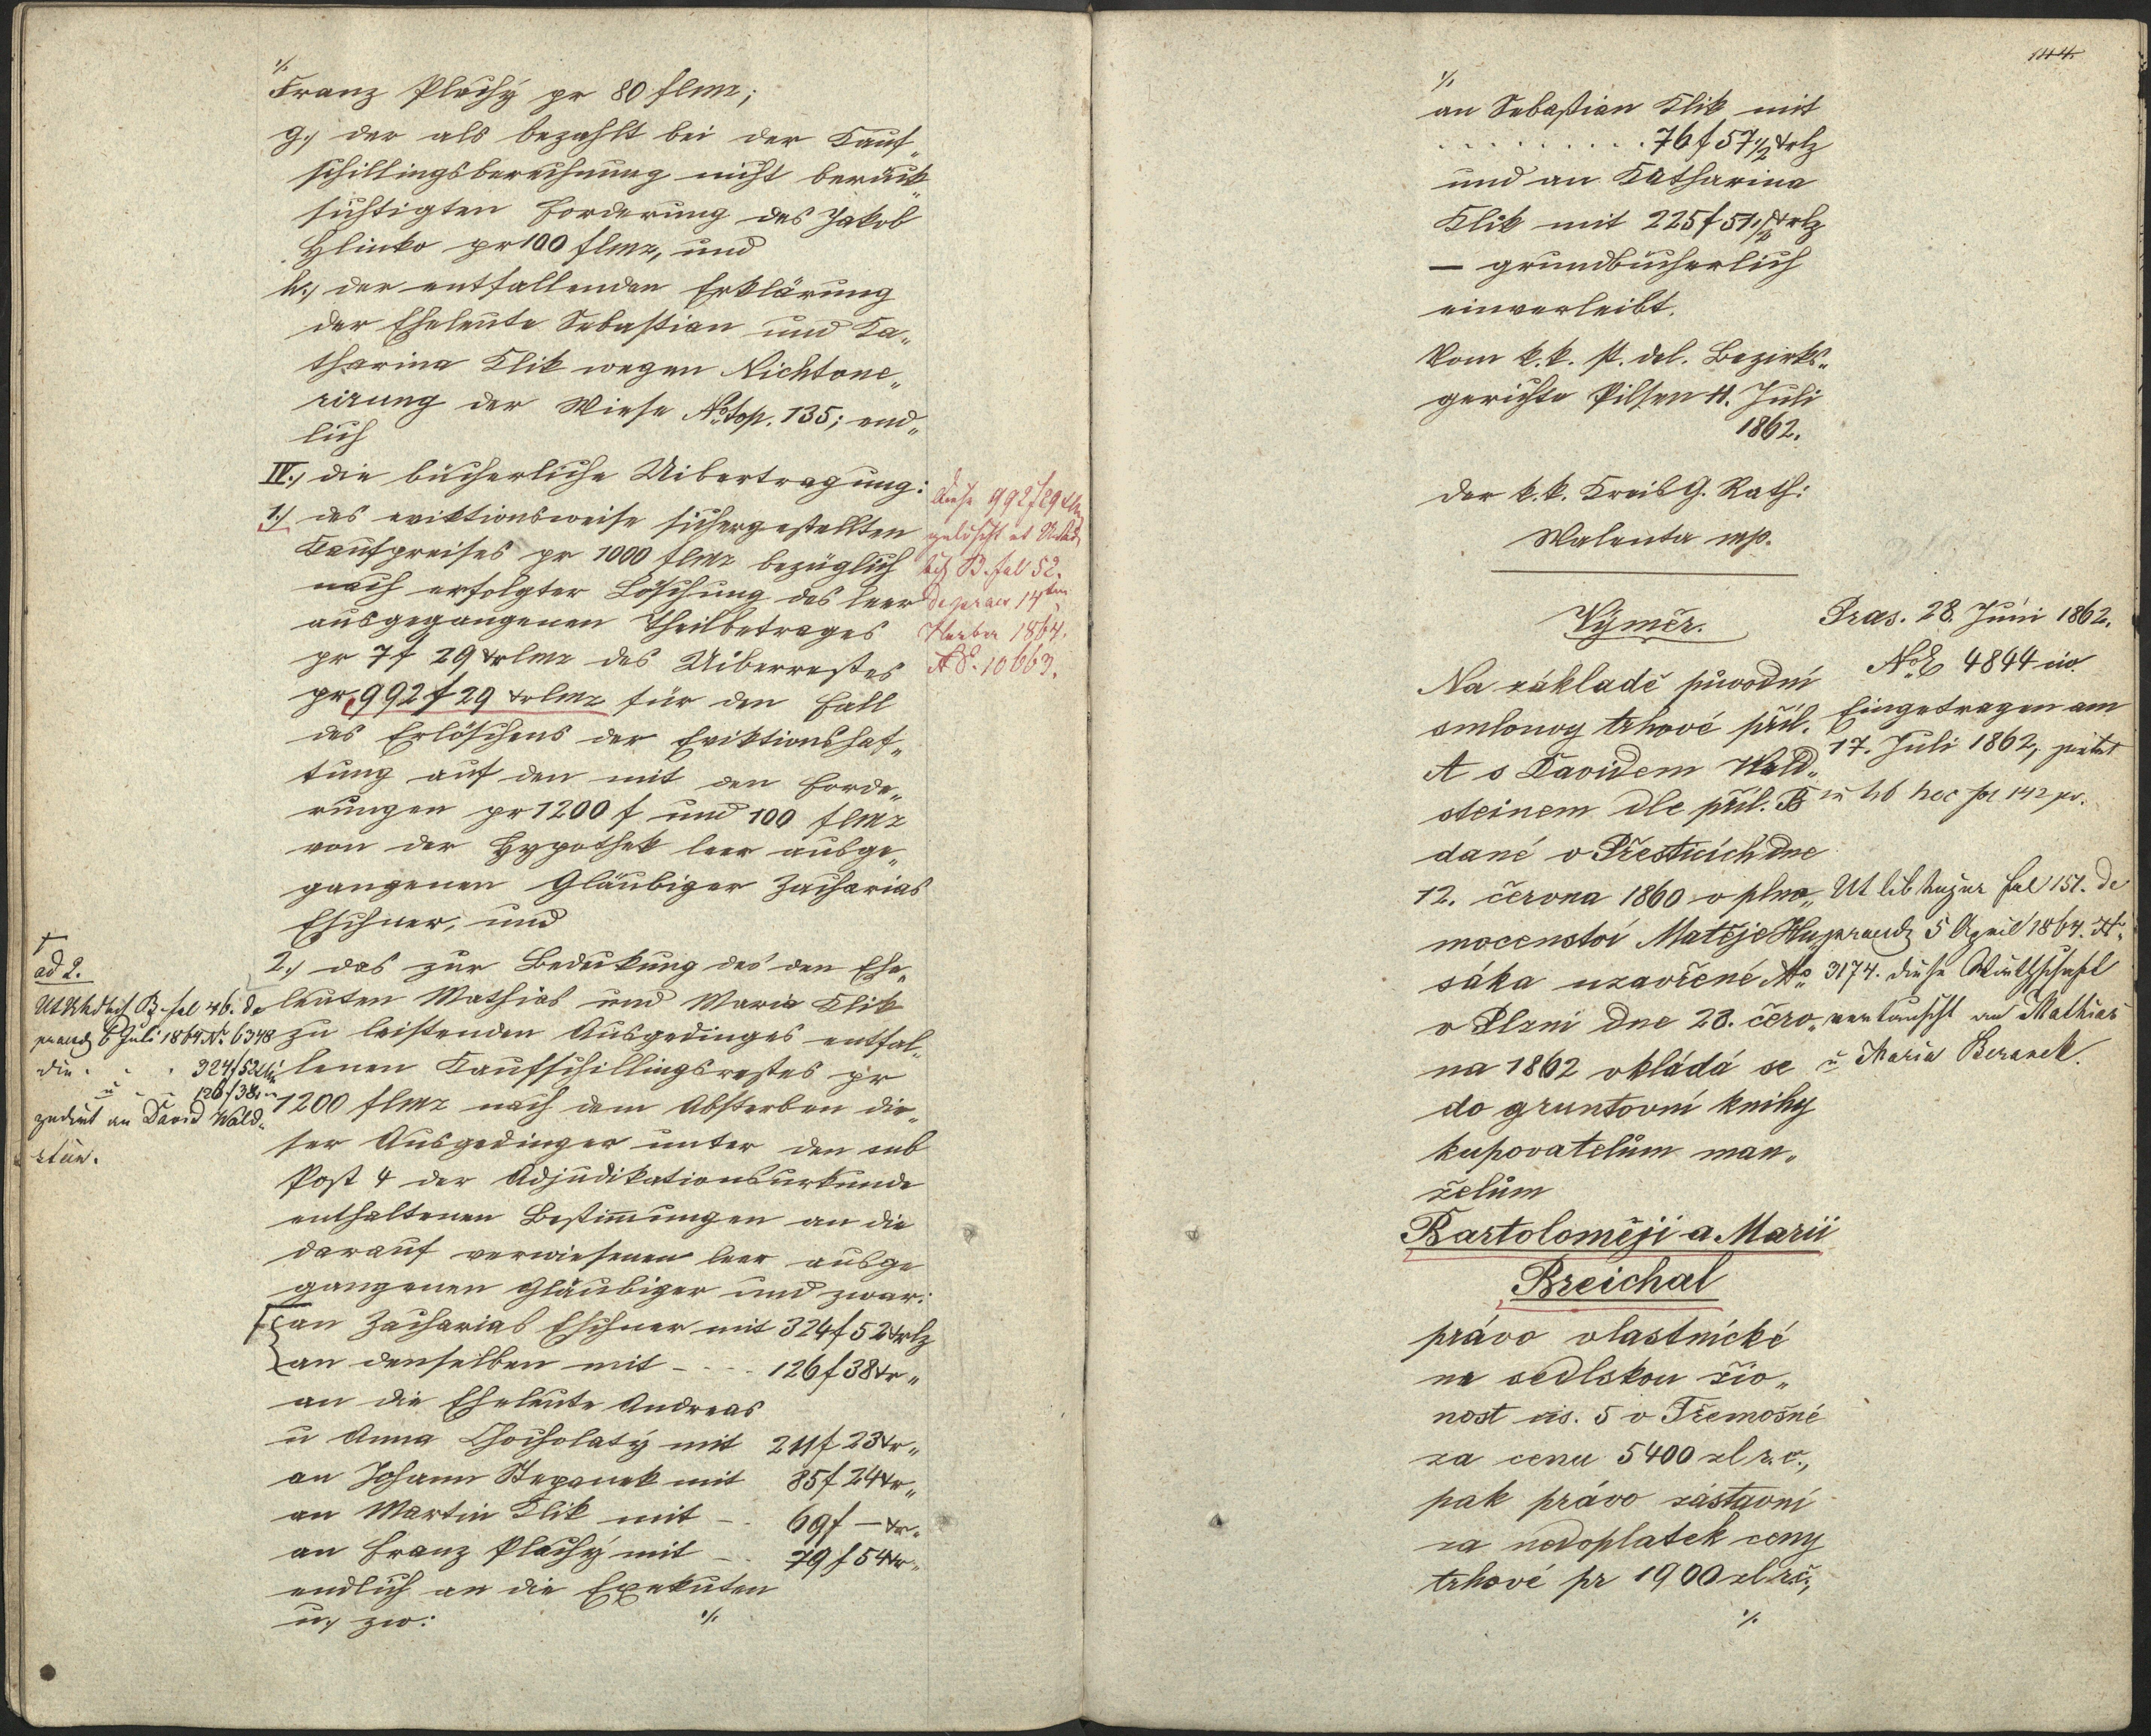 %
Franz Plachý pr 80 flmz;
g.) der als bezahlt bei der Kauf„
schillingsberechnung nicht berück„
sichtigten Forderung des Jakob
Hlinko pr 100 flmz, und
h.) der entfallenden Erklärung
der Eheleute Sebastian und Ka„
tharina Klik wegen Nichtone„
rirung der Wiese No top. 135; end„
lich
IV.) die bücherliche Uibertragung:
1.) des eviktionsweise sichergestellten
Kaufpreises pr 1000 flmz bezüglich
nach erfolgter Löschung des leer
ausgegangenen Theilbetrages
pr 7 f 29 xrlmz des Uiberrestes
pr 992 f 29 xrlmz für den Fall
des Erlöschens der Eviktionshaf„
tung auf den mit den Forde„
rungen pr 1200 f und 100 flmz
von der Hypothek leer ausge„
gangenen Gläubiger Zacharias
Eschner, und
2.) das zur Bedekung des den Ehe„
leuten Mathias und Maria Klik
zu leistenden Ausgedinges entfal„
lenen Kaufschillingsrestes pr
1200 flmz nach dem Absterben die„
ser Ausgedinger unter den sub
Post 4 der Adjudikationsurkunde
enthaltenen Bestimmungen an die
darauf verwiesenen leer ausge
gangenen Gläubiger und zwar:
an Zacharias Eschner mit 324 f 52 xrlz
an denselben mit - - - - 126 f 38 xr „
an die Eheleute Andreas
u Anna Chocholatý mit 211 f 23 xr „
an Johann Stepanek mit 85 f 24 xr „
an Martin Klik mit - - 69 f — xr „
an Franz Plachý mit - - 79 f 54 xr „
endlich an die Exekuten
u. zw: %
diese 992 f 29
gelöscht
B. fol 52.
de praes 14ten
1864.
NE. 10663.
ad 2.
B fol 46. de
praes 6 Juli 1864 No 6348
die . . . 324 f 52
u . . 126 f 38
zedirt an David Wald„
stein.
144.
%
an Sebastian Klik mit
. . . . . . . . . 76 f 57 1/2 xrlz
und an Katharina
Klik mit 225 f 51 1/2 xrlz
— grundbücherlich
einverleibt.
Vom k. k. st. del. Bezirks„
gerichte Pilsen 11. Juli
1862.
Der k. k. Kreis G. Rath:
Walenta mp.
Výměr.
Na základě původní
smlouvy trhové příl.
A s Davidem Wald„
steinem dle příl. B
dané v Přesticích dne
12. června 1860 v plno„
mocenství Matěje Hu„
sáka uzavřené
v Plzni dne 23. červ„
na 1862 vkládá se
do gruntovní knihy
kupovatelům man„
želům
Bartoloměji a Marii
Breichal
právo vlastnické
na sedlskou živ„
nost čís. 5 v Třemošné
za cenu 5400 zl r. č.,
pak právo zástavní
za nedoplatek ceny
trhové pr 1900 zl r.č.,
%
Pras. 28. Juni 1862.
NoE 4844 civ.
Eingetragen am
17. Juli 1862,
in lib hoc fol 142 pv.
Ut lib fol 151. de
praes 5 April 1864.
No 3174. diese Wirthschaft
vertauscht an Mathias
u Maria Beranek.